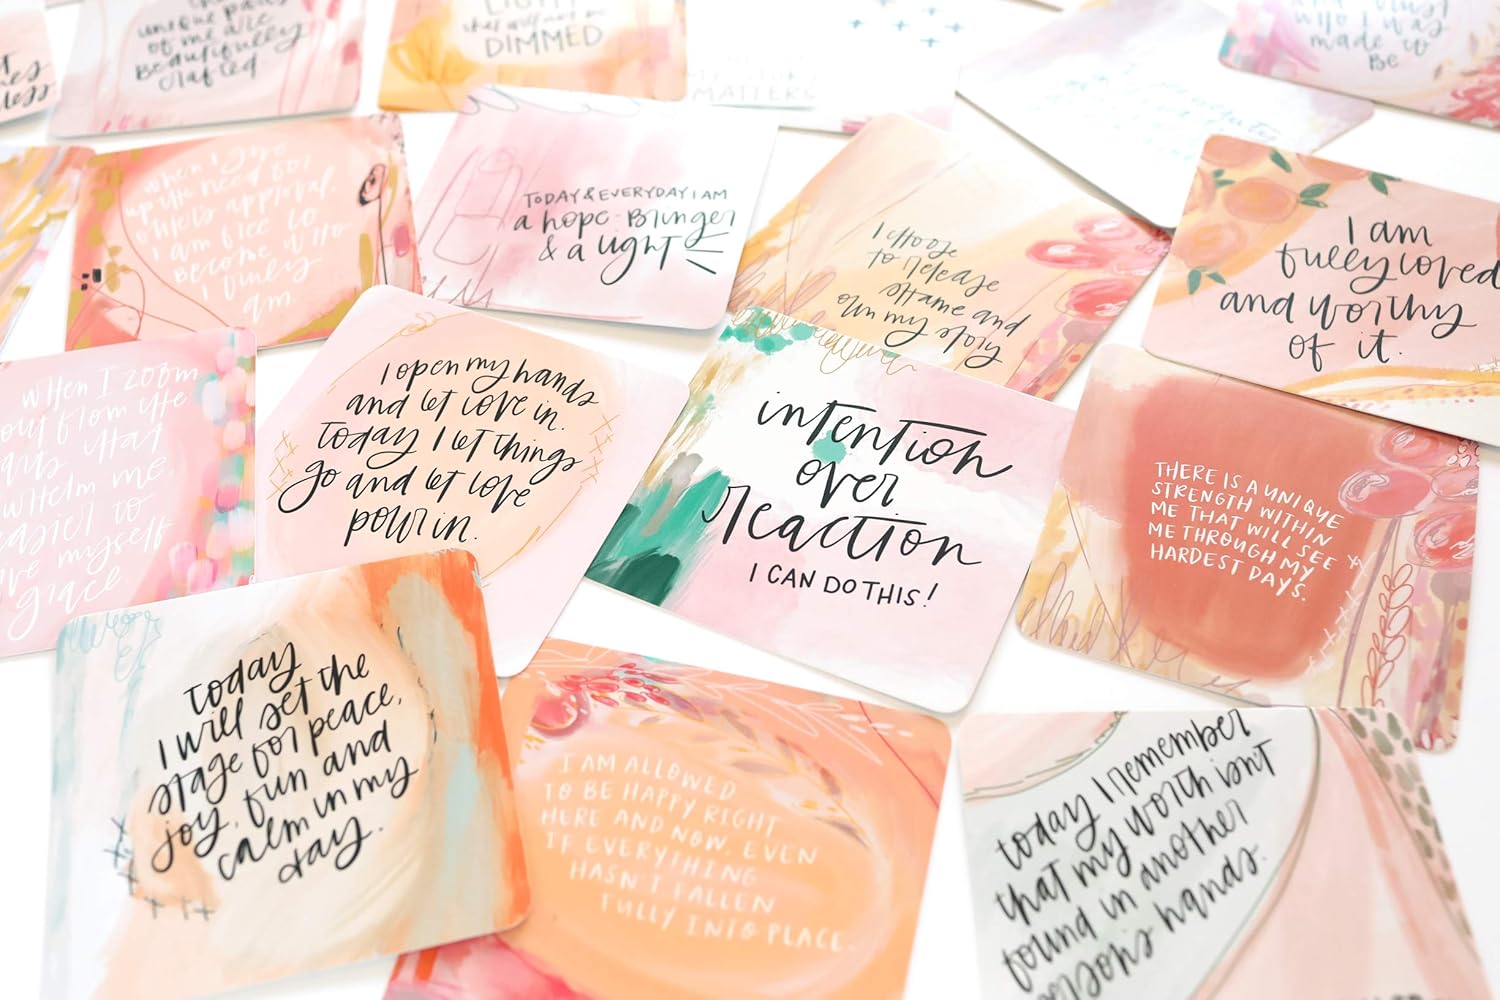 unique parts
of me are
Beautifully
Crafted
LIGHT
she will not be
DIMMED
MY STORY
MATTERS
and trust
who I was
made to
Be
when I give
up the need for
others approval,
I am free to
Become who
I truly
am.
TODAY & EVERYDAY I AM
a hope-Bringer
& a light
I choose
to release
shame and
own my story
I am
fully loved
and worthy
of it.
when I zoom
out from the
parts that
me,
easier to
myself
grace.
I open my hands
and let love in.
Today I let things
go and let love
pour in.
intention
over
reaction
I CAN DO THIS!
THERE IS A UNIQUE
STRENGTH WITHIN
ME THAT WILL SEE
ME THROUGH MY
HARDEST DAYS.
today
I will set the
stage for peace,
joy, fun and
calm in my
day.
I AM ALLOWED
TO BE HAPPY RIGHT
HERE AND NOW, EVEN
IF EVERYTHING
HASN'T FALLEN
FULLY INTO PLACE.
today I remember
that my worth isn't
found in another
persons hands.